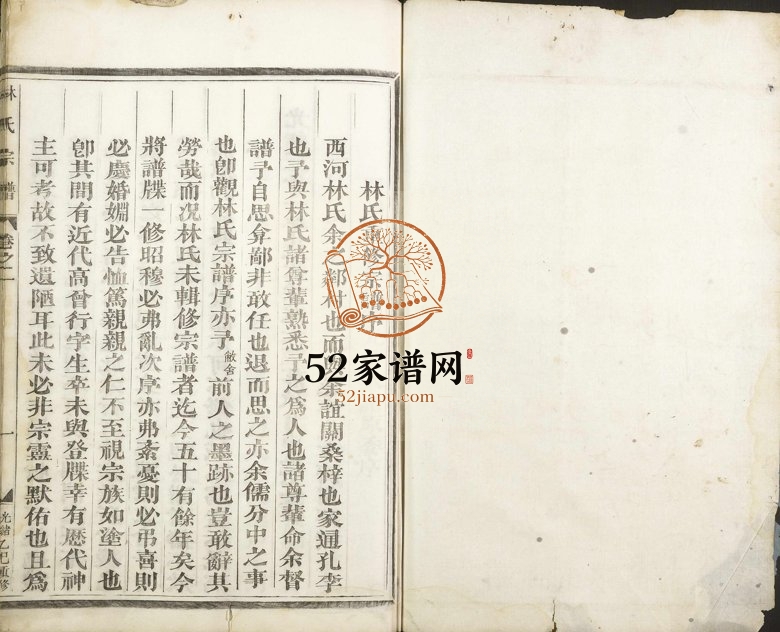 林氏重修宗譜序
西河林氏余之鄰村也而與余誼關桑梓也家通孔李
也予與林氏諸尊輩熟悉予之爲人也諸尊輩命余督
譜予自思弇鄙非敢任也退而思之亦余儒分中之事
也卽觀林氏宗譜序亦予敝舍前人之墨跡也豈敢辭其
勞哉而况林氏未輯修宗譜者迄今五十有餘年矣今
將譜牒一修昭穆必弗亂次序亦弗紊憂則必弔喜則
必慶婚婣必告恤篤親親之仁不至視宗族如塗人也
卽其間有近代高曾行字生卒未與登牒幸有歷代神
主可考故不致遺陋耳此未必非宗靈之默佑也且爲
林氏宗譜
卷之一
一
光緒乙巳重修
52家谱网
52jiapu.com